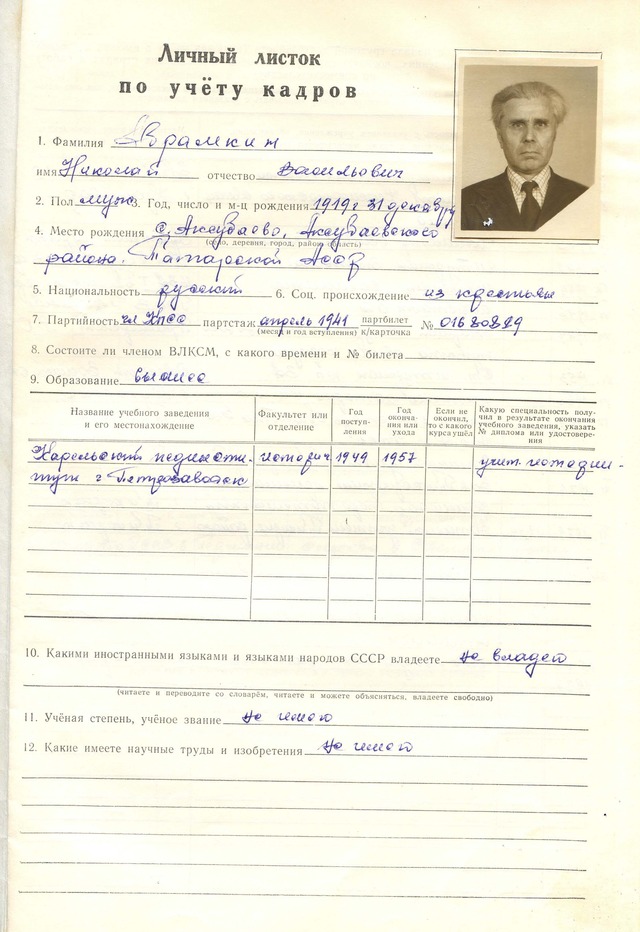 Личный листок
по учёту кадров
1. Фамилия Аврамкин
имя Николай отчество Васильович
2. Пол муж 3. Год, число и м-ц рождения 1919 г 31 декабря
4. Место рождения с. Аксубаево, Аксубаевского
(село, деревня, город, район, область)
района. Татарской АССР
5. Национальность русский 6. Соц. происхождение из крестьян
7. Партийность чл КПСС партстаж апрель 1941 партбилет к/карточка №
(месяц и год вступления)
8. Состоите ли членом ВЛКСМ, с какого времени и № билета
9. Образование высшее
Название учебного заведения и его местонахождение Факультет или отделение Год поступления Год окончания или ухода Если не окончил, то с какого курса ушёл Какую специальность получил в результате окончания учебного заведения, указать № диплома или удостоверения
Карельский пединсти- историч 1949 1957 учит. истории.
тут г Петрозаводск
10. Какими иностранными языками и языками народов СССР владеете не владею
(читаете и переводите со словарём, читаете и можете объясняться, владеете свободно)
11. Учёная степень, учёное звание не имею
12. Какие имеете научные труды и изобретения не имею